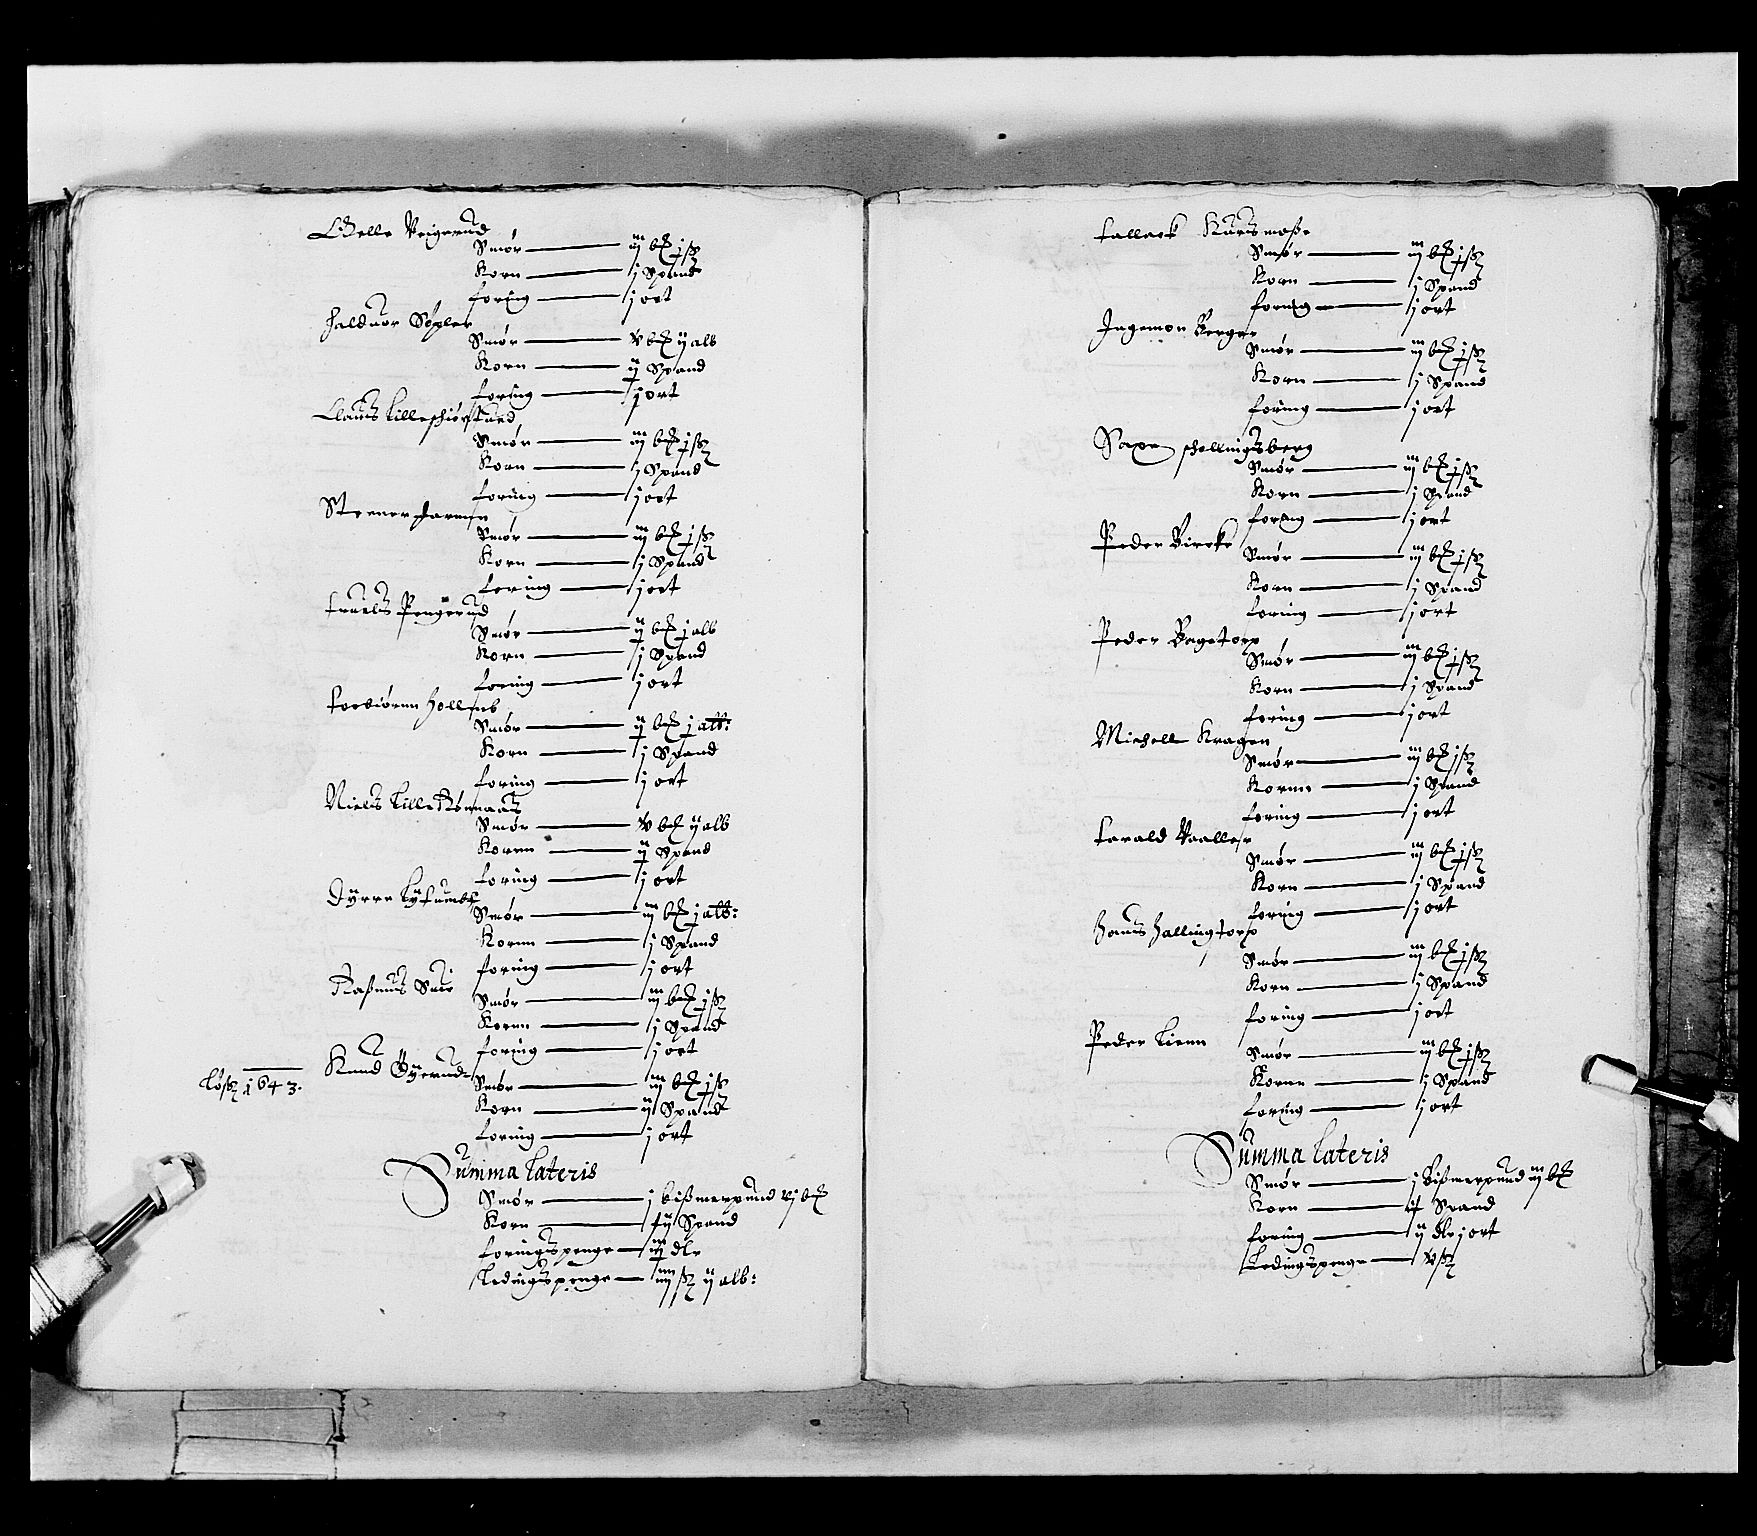 Helle Veigerud
Smør — iij bẞ j ß
Korn — j Spand
foring — j ort
Haldvor Sopler
Smør — v bẞ ij alb
Korn — ij Spand
foring — j ort
Clauus Lille
Smør — iij bẞ j ß
Korn — j Spand
foring — j ort
Steener
Smør — iij bẞ j ß
Korn — j Spand
foring — j ort
Truels Pengerud
Smør — ij bẞ j alb
Korn — j Spand
foring — j ort
Torbiørnn
Smør — ij bẞ j alb:
Korn — j Spand
foring — j ort
Niels Lille
Smør — v bẞ ij alb
Kornn — ij Spand
foring — j ort
Dyrre
Smør — iij bẞ j alb:
Kornn — j Spand
foring — j ort
Raßmus
Smør — iij bẞ j ß
Kornn — j Spand
foring — j ort
Løß 1643. Knud Øyerud
Smør — iij bẞ j ß
Korn — ij Spand
foring — j ort
Summa Lateris
Smør — j bißmerpund vj bẞ
Korn — Spand
foringspenge — dlr
Ledingspenge — iiij ß ij alb:
Tallack Kursmoße
Smør — iij bẞ j ß
Korn — j Spand
foring — j ort
Ingemon Berger
Smør — iij bẞ j ß
Korn — j Spand
foring — j ort
Saxe Hellingsberg
Smør — iij bẞ j ß
Korn — j Spand
foring — j ort
Peder Bircke
Smør — iij bẞ j ß
Korn — j Spand
foring — j ort
Peder Bagetorp
Smør — iij bẞ j ß
Korn — j Spand
foring — j ort
Michell Kragen
Smør — iij bẞ j ß
Kornn — j Spand
foring — j ort
Harald Vaaller
Smør — iij bẞ j ß
Korn — j Spand
foring — j ort
Hanns Hallingtorp
Smør — iij bẞ j ß
Korn — j Spand
foring — j ort
Peder Lienn
Smør — iij bẞ j ß
Kornn — j Spand
foring — j ort
Summa Lateris
Smør — j bißmerpund iij bẞ
Korn — Spand
foring — ij dlr j ort
Ledingspenge — v ß